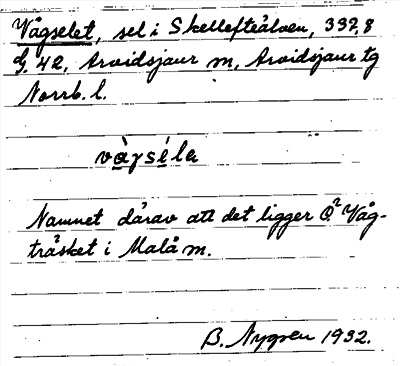 Vågselet, sel i Skellefteälven, 332,8
G. 42, Arvidsjaur m, Arvidsjaur tg
Norrb. l.
vàgséla
Namnet därav att det ligger Ö² Våg-
träsket i Malå m.
B. Nygren 1932.